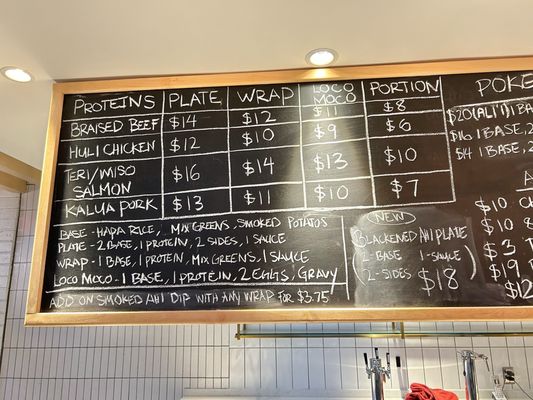 PROTEINS PLATE WRAP LOCO MOCO PORTION
BRAISED BEEF $14 $12 $11 $8
HULI CHICKEN $12 $10 $9 $6
TERI/MISO SALMON $16 $14 $13 $10
KALUA PORK $13 $11 $10 $7
BASE - HAPA RICE, MIX GREENS, SMOKED POTATOS
PLATE - 2 BASE, 1 PROTEIN, 2 SIDES, 1 SAUCE
WRAP - 1 BASE, 1 PROTEIN, MIX GREENS, 1 SAUCE
LOCO MOCO - 1 BASE, 1 PROTEIN, 2 EGGS, GRAVY
ADD ON SMOKED AHI DIP WITH ANY WRAP FOR $3.75
NEW
BLACKENED AHI PLATE
(2-BASE 1-SAUCE)
(2-SIDES $18)
POKE
$20 (ALI'I) 1 BASE
$16 1 BASE, 2
$14 1 BASE, 2
A
$10 C
$10 8
$3 T
$19
$12